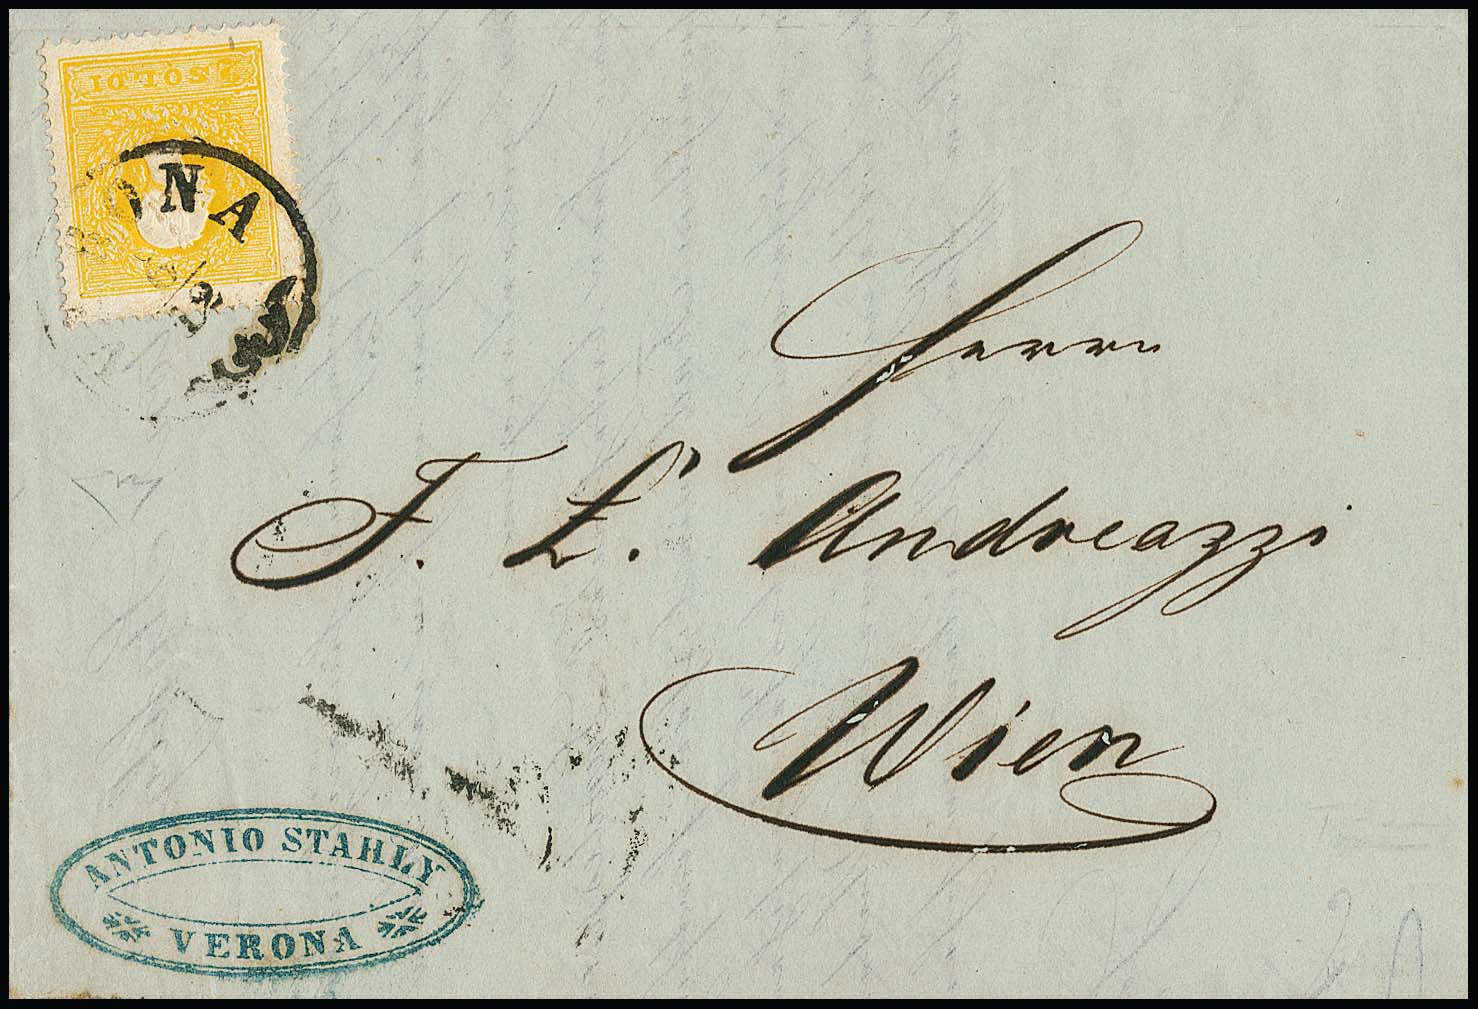 2 SOLDI
NA
Herrn
F. L. Andreazzi
Wien
ANTONIO STAHLY
VERONA